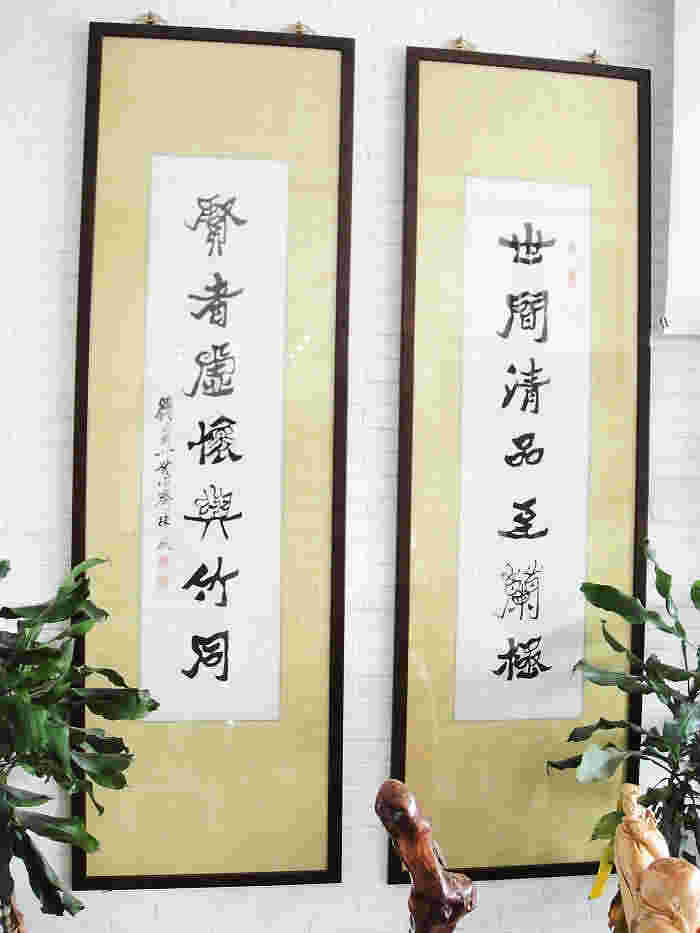 世間清品至蘭極
賢者虛懷與竹同